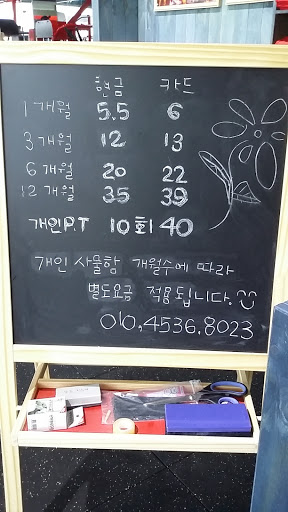 현금 카드
1개월 5.5 6
3개월 12 13
6개월 20 22
12개월 35 39
개인P.T 10회 40
개인 사물함 개월수에 따라
별도요금 적용됩니다.
010.4536.8023